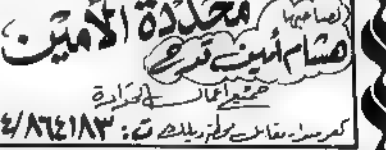 محددة الأمين
لصاحبها
هشام أمين قدح
جميع أعمال الحدادة
كفرصير مقابل محطة زيلك ت: ٤/٨٦٤١٨٣